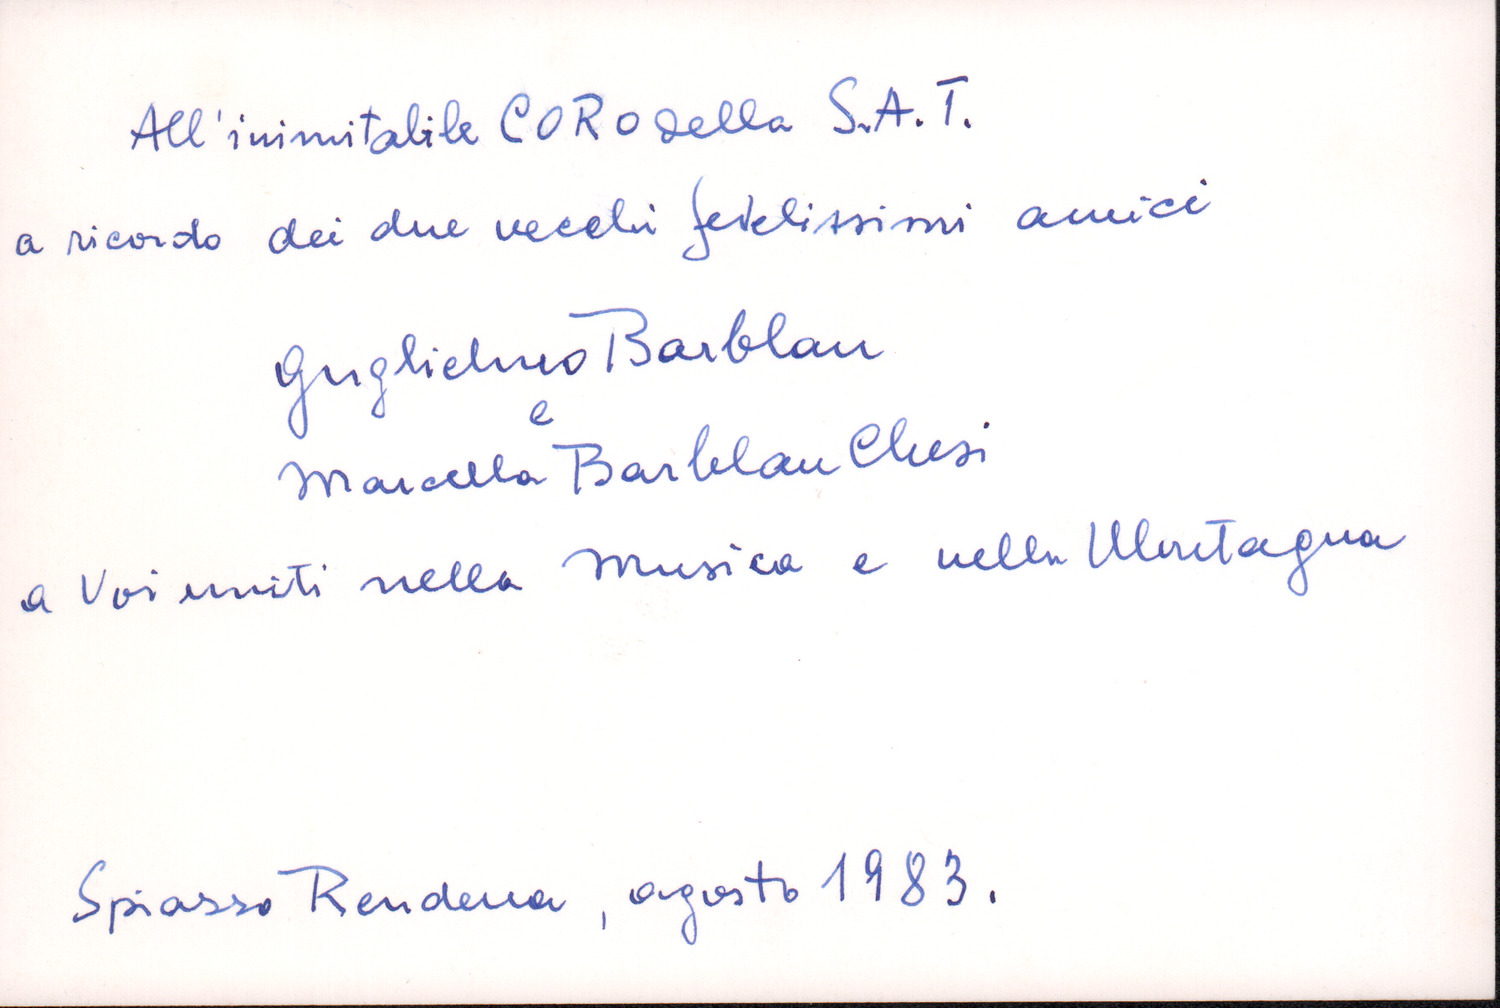 All'inimitabile CORO della S.A.T.
a ricordo dei due vecchi fedelissimi amici
Guglielmo Barblan
e
Marcella Barblan Chesi
a Voi uniti nella Musica e nella Montagna
Spiazzo Rendena, agosto 1983.